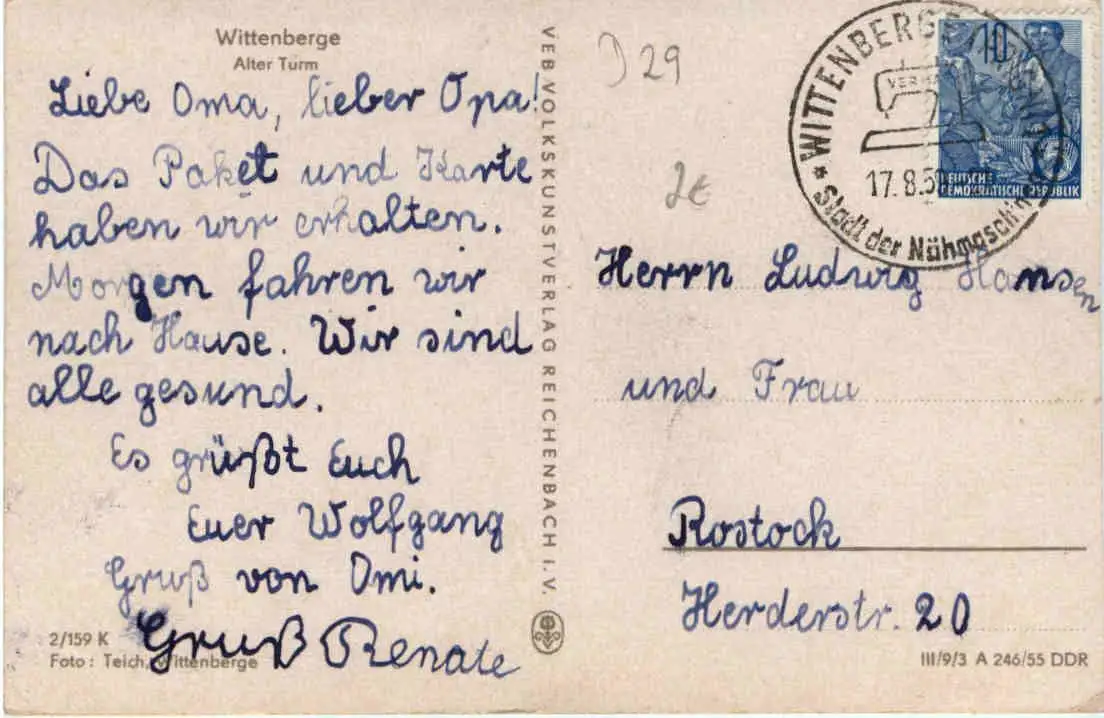 Wittenberge
Alter Turm
Liebe Oma, lieber Opa!
Das Paket und Karte
haben wir erhalten.
Morgen fahren wir
nach Hause. Wir sind
alle gesund.
Es grüßt Euch
Euer Wolfgang
Gruß von Omi.
Gruß Renate
2/159 K
Foto: Teich, Wittenberge
VEB VOLKSKUNSTVERLAG REICHENBACH I. V.
D 29
2€
* WITTENBERGE
17.8.5
Stadt der Nähmaschin
10
DEUTSCHE
DEMOKRATISCHE REPUBLIK
Herrn Ludwig Hansen
und Frau
Rostock
Herderstr. 20
III/9/3 A 246/55 DDR